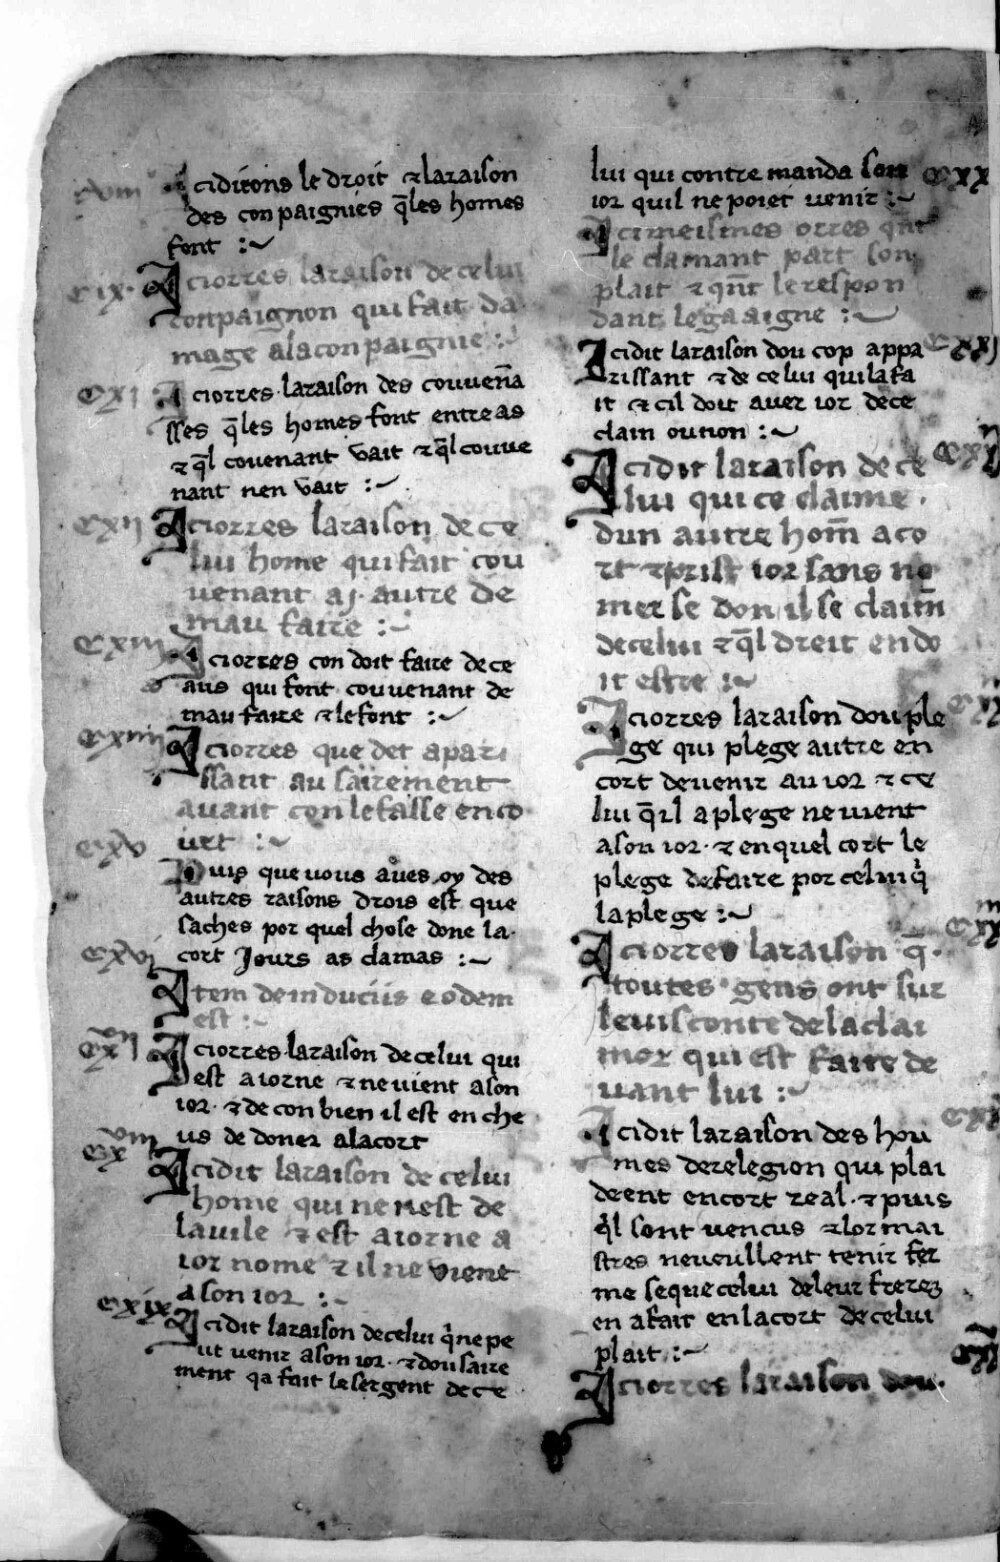 I cidirons le droit ⁊ la raison
des conpaignies q̄les homes
font :~
cix. I ci orres la raison de celui
conpaignon qui fait da
mage a la conpaignie :~
cxi I ci orres la raison des couuena
sses q̄les homes font entre as
⁊ q̄l couenant vait ⁊ q̄l couue
nant nen vait :~
cxii I ci orres la raison de ce
lui home qui fait cou
uenant a .i. autre de
mau faire :~
cxiii I ci orres con doit faire de ce
aus qui font couuenant de
mau faire ⁊ le font :~
cxiiii I ci orres que det apar
ssant au sairement
auant con le false en co
urt :~
cxv Puis que uous aues oy des
autres raisons drois est que
saches por quel chose done la
cxvi cort Jours as clamas :~
Item de induciis eodem
est :~
cxvii I ci orres la raison de celui qui
est aiorne ⁊ ne uient a son
ior. ⁊ de con bien il est en che
us de doner a la cort
cxviii I ci dit la raison de celui
home qui ne nest de
la uile ⁊ est aiorne a
ior nome ⁊ il ne vient
a son ior :~
cxix I ci dit la raison de celui q̍ ne pe
ut uenir a son ior. ⁊ dou saire
ment qa fait le sergent de ce
lui qui contre manda son cxx
ior quil ne poiet uenir :~
I ci meismes orres qn̄t
le clamant part son
plait ⁊ qn̄t le respon
dant le gaaigne :~
I ci dit la raison dou cop appa cxxi
rissant ⁊ de celui qui la fa
it ⁊ cil doit auer ior de ce
clain ou non :~
I ci dit la raison de ce
lui qui ce claime
dun autre hom̄ a co
rt ⁊ prist ior sans no
mer se don il se claim̄
de celui ⁊ q̄l dreit en do
it estre :~
I ci orres la raison dou ple
ge qui plege autre en
cort de uenir au ior ⁊ ce
lui q̄ il a plege ne uient
a son ior. ⁊ en quel cort le
plege defaire por celui q̍
la plege :~
I ci orres la raison q̄
toutes gens ont sur
le uisconte de la clai
mor qui est faite de
uant lui :~
I ci dit la raison des hou
mes de relegion qui plai
deent en cort real. ⁊ puis
q̍l sont uencus ⁊ lor mai
stres ne ueullent tenir fer
me se que celui de leur freres
en a fait en la cort de celui
plait :~
I ci orres la raison dou